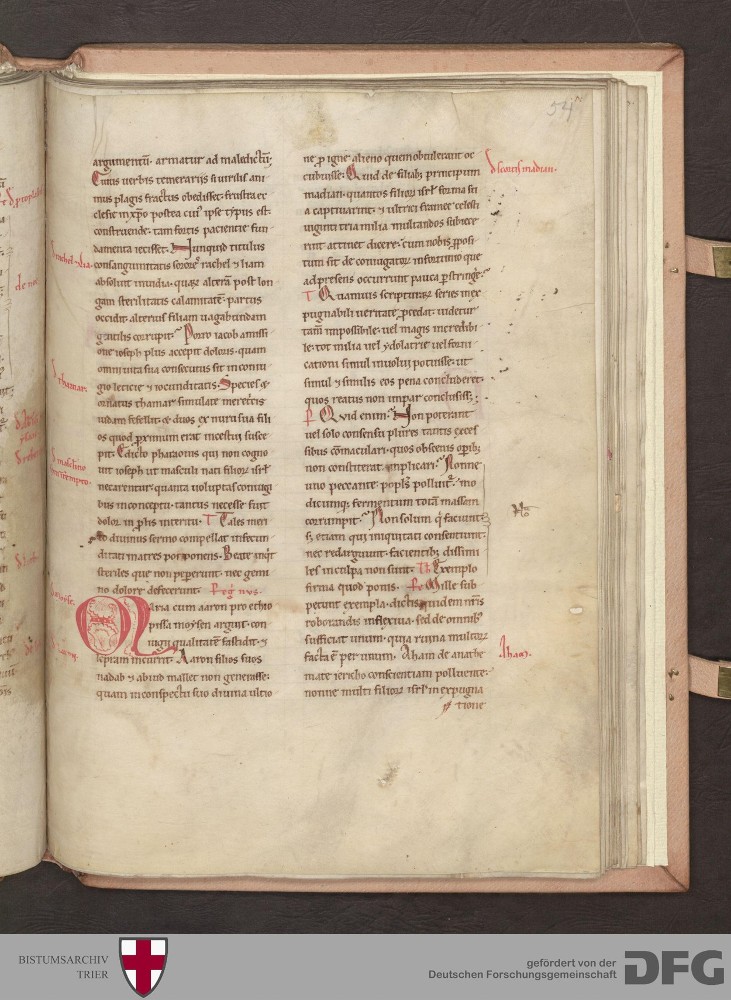 54
argumentū · armatur ad maledictū ·
Cuius uerbis temerarijs si uirilis ani
mus plagis fractus obedisset · frustra ec
clesie in xp̄o postea cui' ipse typus est ·
construende · tam fortis pacientie fun
damenta iecisset · Nunquid titulus
consanguinitatis sorores rachel & liam
absoluit inuidia · quarū alterā post lon
gam sterilitatis calamitatē · partus
occidit · alterius filiam uagabundam
gentilis corrupit · Porro iacob amissi
one ioseph plus accepit doloris · quam
omni uita sua consecutus sit in coniu
gio leticie & iocunditatis · Species &
ornatus thamar simulate meretricis
iudam fefellit · & duos ex nuru sua fili
os quod proximum erat incestui susce
pit · Edicto pharaonis qui non cogno
uit ioseph ut masculi nati filiorū isrl'
necarentur · quanta uoluptas coniugi
bus in conceptu · tantus necesse fuit
dolor in prolis interitu · T Tales meri
to diuinus sermo compellat infecun
ditati matres postponens · Beate inqit
steriles que non pepererunt · nec gemi
no dolore defecerunt ·
Maria cum aaron pro ethio
pissa moysen arguit · con
iugii qualitatē fastidit · &
lepram incurrit · Aaron filios suos
nadab & abiud mallet non genuisse ·
quam in conspectu suo diuina ultio
d' rachel & lia ·
d' thamar ·
ne pro igne alieno quem obtulerant oc
cubuisse · Quid de filiab; principum
madian · quantos filiorū isrl' forma su
a captiuarint · & ultrici framee celesti
uiginti tria milia multandos subiece
rint attinet dicere · cum nobis proposi
tum sit de coniugatorū infortunio que
ad presens occurrunt pauca perstringe ·
T Quamuis scripturarū series inex
pugnabili ueritate procedat · uidetur
tamē impossibile · uel magis incredibi
le · tot milia uel ydolatrie uel forni
cationi simul inuolui potuisse · ut
simul & similis eos pena concluderet ·
quos reatus non impar conclusiss; ·
P Quid enim · Non poterant
uel solo consensu plures tantis exces
sibus cōmaculari · quos obscenis operib;
non constiterat implicari · Nonne
uno peccante · populs̄ polluit' · mo
dicumq; fermentum totā massam
corrumpit · Non solum q̄ faciunt
s; etiam qui iniquitati consentiunt ·
nec redarguunt · facientib; dissimi
les in culpa non sunt · Th Exemplo
firma quod ponis · P Mille sub
petunt exempla · dictis quidem nr̄is
roborandis in flexiua · sed de omnib'
sufficiat unum · quia ruina multorū
facta ē per unum · Aham de anathe
mate iericho conscientiam polluente ·
nonne multi filiorū isrl' in expugna
tione
Aham ·
BISTUMSARCHIV
TRIER
gefördert von der
Deutschen Forschungsgemeinschaft
DFG